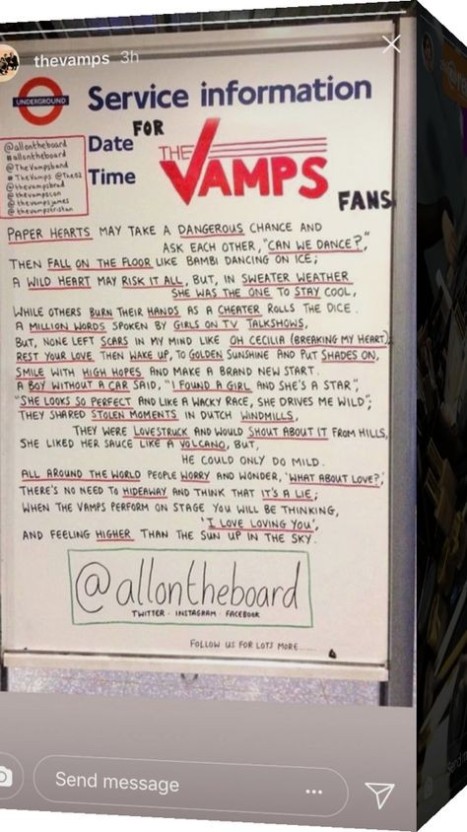 thevamps 3h
UNDERGROUND
Service information
Date FOR
Time
THE VAMPS
FANS
@allontheboard
#allontheboard
@TheVampsband
#TheVamps @TheO2
@thevampsbrad
@thevampscon
@thevampsjames
@thevampstristan
PAPER HEARTS MAY TAKE A DANGEROUS CHANCE AND
ASK EACH OTHER, "CAN WE DANCE?",
THEN FALL ON THE FLOOR LIKE BAMBI DANCING ON ICE;
A WILD HEART MAY RISK IT ALL, BUT, IN SWEATER WEATHER
SHE WAS THE ONE TO STAY COOL,
WHILE OTHERS BURN THEIR HANDS AS A CHEATER ROLLS THE DICE.
A MILLION WORDS SPOKEN BY GIRLS ON TV TALKSHOWS,
BUT, NONE LEFT SCARS IN MY MIND LIKE OH CECILIA (BREAKING MY HEART)
REST YOUR LOVE THEN WAKE UP, TO GOLDEN SUNSHINE AND PUT SHADES ON,
SMILE WITH HIGH HOPES AND MAKE A BRAND NEW START.
A BOY WITHOUT A CAR SAID, "I FOUND A GIRL AND SHE'S A STAR",
"SHE LOOKS SO PERFECT AND LIKE A WACKY RACE, SHE DRIVES ME WILD";
THEY SHARED STOLEN MOMENTS IN DUTCH WINDMILLS,
THEY WERE LOVESTRUCK AND WOULD SHOUT ABOUT IT FROM HILLS,
SHE LIKED HER SAUCE LIKE A VOLCANO, BUT,
HE COULD ONLY DO MILD.
ALL AROUND THE WORLD PEOPLE WORRY AND WONDER, 'WHAT ABOUT LOVE?',
THERE'S NO NEED TO HIDEAWAY AND THINK THAT IT'S A LIE;
WHEN THE VAMPS PERFORM ON STAGE YOU WILL BE THINKING,
'I LOVE LOVING YOU',
AND FEELING HIGHER THAN THE SUN UP IN THE SKY.
@allontheboard
TWITTER · INSTAGRAM · FACEBOOK
FOLLOW US FOR LOTS MORE
Send message